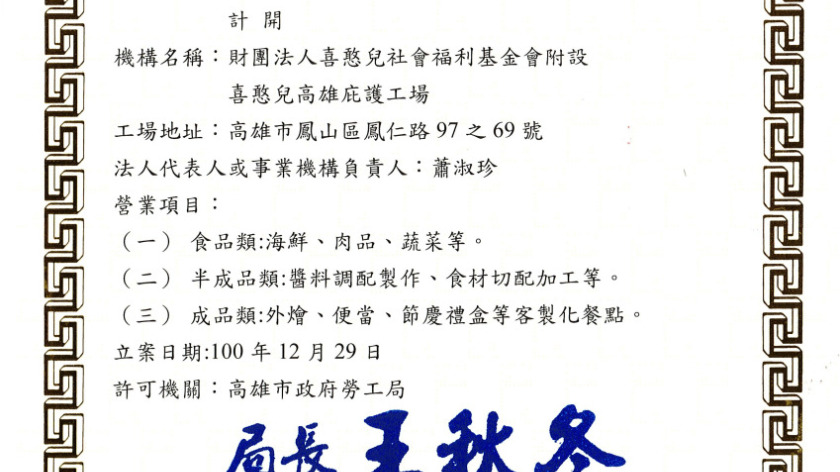 計 開
機構名稱：財團法人喜憨兒社會福利基金會附設
喜憨兒高雄庇護工場
工場地址：高雄市鳳山區鳳仁路 97 之 69 號
法人代表人或事業機構負責人：蕭淑珍
營業項目：
（一） 食品類:海鮮、肉品、蔬菜等。
（二） 半成品類:醬料調配製作、食材切配加工等。
（三） 成品類:外燴、便當、節慶禮盒等客製化餐點。
立案日期:100 年 12 月 29 日
許可機關：高雄市政府勞工局
局長 王秋冬